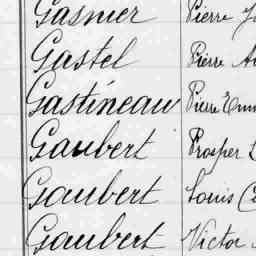 Gasnier Pierre
Gastel Pierre
Gastineau Pierre
Gaubert Prosper
Gaubert Louis
Gaubert Victor